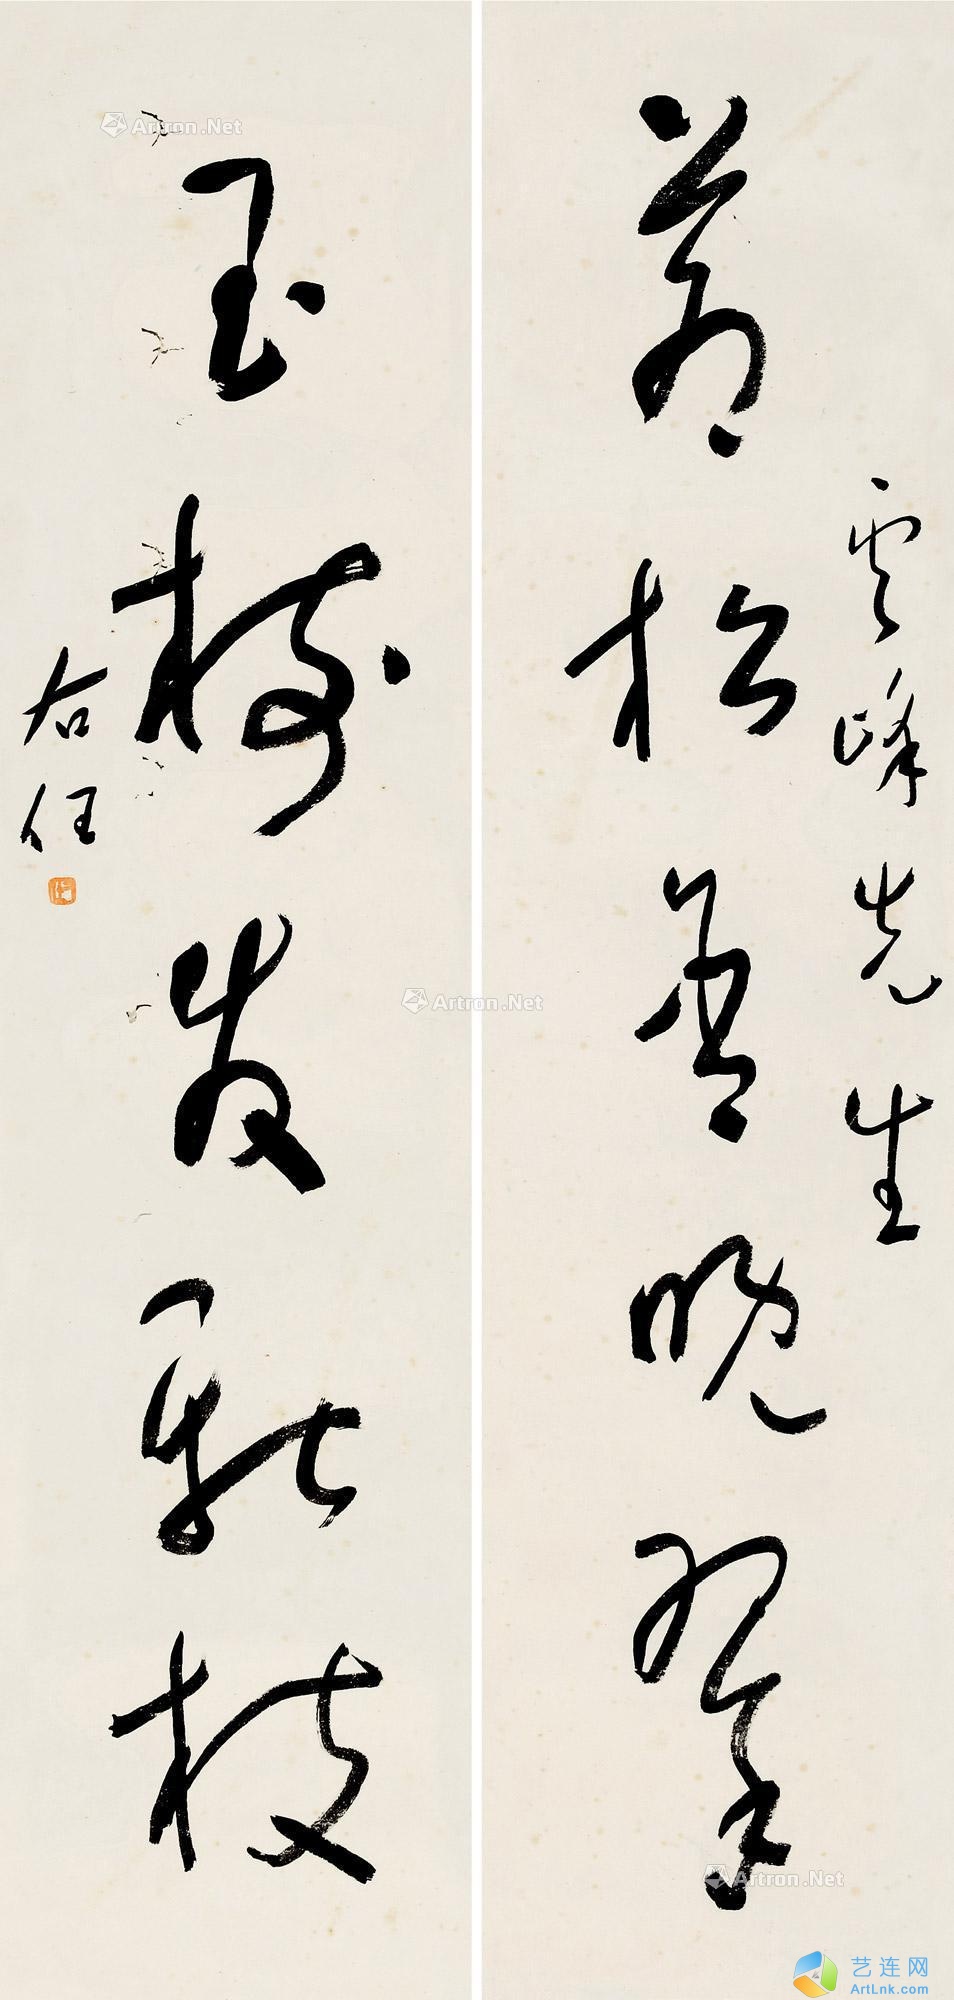 雲峰先生
蒼松含晚翠
玉樹發新枝
右任
Artron.Net
Artron.Net
Artron.Net
艺连网
ArtLnk.com